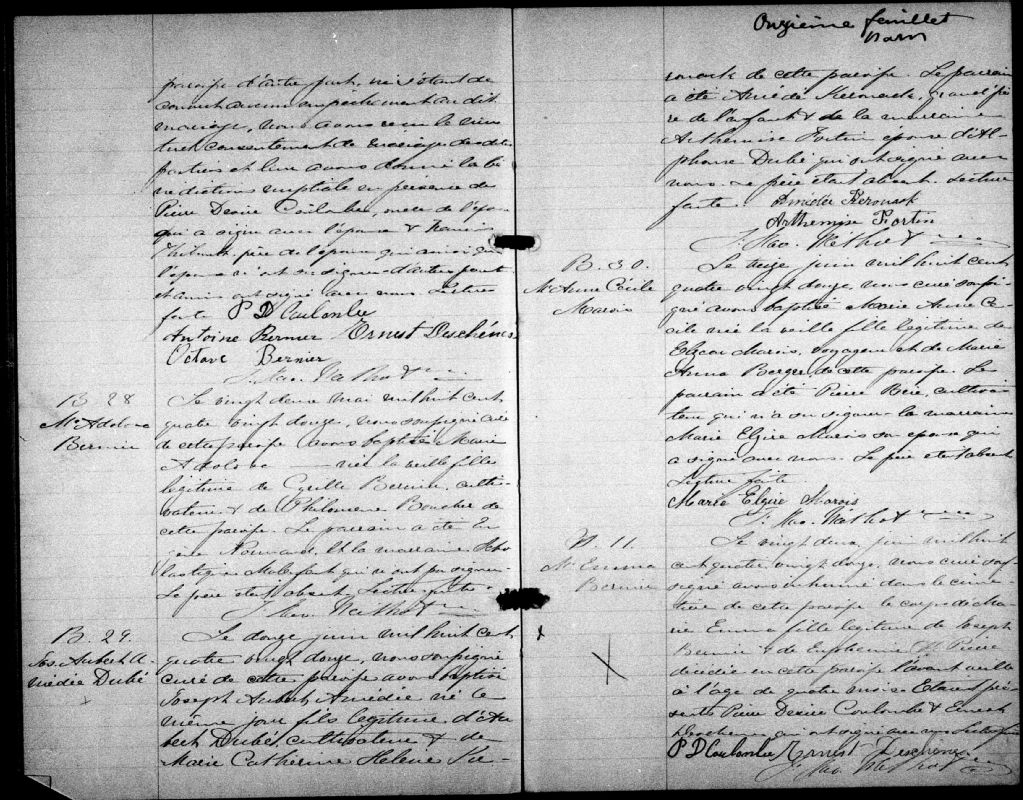 paroisse d'autre part, ne s'étant dé
couvert aucun empêchement au dit
mariage, nous avons reçu le mu
tuel consentement de mariage des dites
parties et leur avons donné la bé
nédiction nuptiale en présence de
Pierre Desire Coulombe, oncle de l'époux
qui a signé avec l'épouse &
Thibault père de l'épouse qui ainsi que
l'époux n'ont su signer. D'autres parents
et amis ont signé avec nous. Lecture
faite P D Coulombe
Antoine Bernier Ernest Deschênes
Octave Bernier
B. 28
M. Adolora
Bernier
Le vingt deux mai mil huit cent
quatre vingt douze, nous soussigné curé
de cette paroisse avons baptisé Marie
Adolora née la veille fille
légitime de Cyrille Bernier, culti-
vateur & de Philomene Boucher de
cette paroisse. Le parrain a été Eu
gène Normand. Et la marraine Scho
lastique qui n'ont pu signer.
Le père était absent. Lecture faite
B. 29.
Jos. Aubert A-
médée Dubé
Le douze juin mil huit cent
quatre vingt douze, nous soussigné
curé de cette paroisse avons baptisé
Joseph Aubert Amédée né le
même jour fils légitime d'Au
bert Dubé, cultivateur & de
Marie Catherine Helene Ke-
Onzième feuillet
rouack de cette paroisse. Le parrain
a été Amédé Kerouack, grand pè
re de l'enfant & de la marraine
Arthemise Fortin épouse d'Al-
phonse Dubé qui ont signé avec
nous. Le père était absent. Lecture
faite. Amédée Kerouack
Arthemise Fortin
B. 30.
M. Anne Cécile
Marois
Le treize juin mil huit cent
quatre vingt douze, nous curé soussi-
gné avons baptisé Marie Anne Cé-
cile née la veille fille légitime de
Elzear Marois, voyageur et de Marie
Anna Berger de cette paroisse. Le
parrain a été Pierre cultiva-
teur qui n'a su signer. La marraine
Marie Elzire Marois son épouse qui
a signé avec nous. Le père était absent
Lecture faite.
Marie Elzire Marois
S. 11.
M. Emma
Bernier
Le vingt deux juin mil huit
cent quatre vingt douze, nous curé sous-
signé avons inhumé dans le cime-
tière de cette paroisse le corps de Ma-
rie Emma fille légitime de Joseph
Bernier & de Euphemie St Pierre
décédée en cette paroisse l'avant veille
à l'âge de quatre mois. Etaient pré-
sents Pierre Desire Coulombe & Ernest
Deschenes qui ont signé avec nous. Lecture faite
P D Coulombe Ernest Deschenes